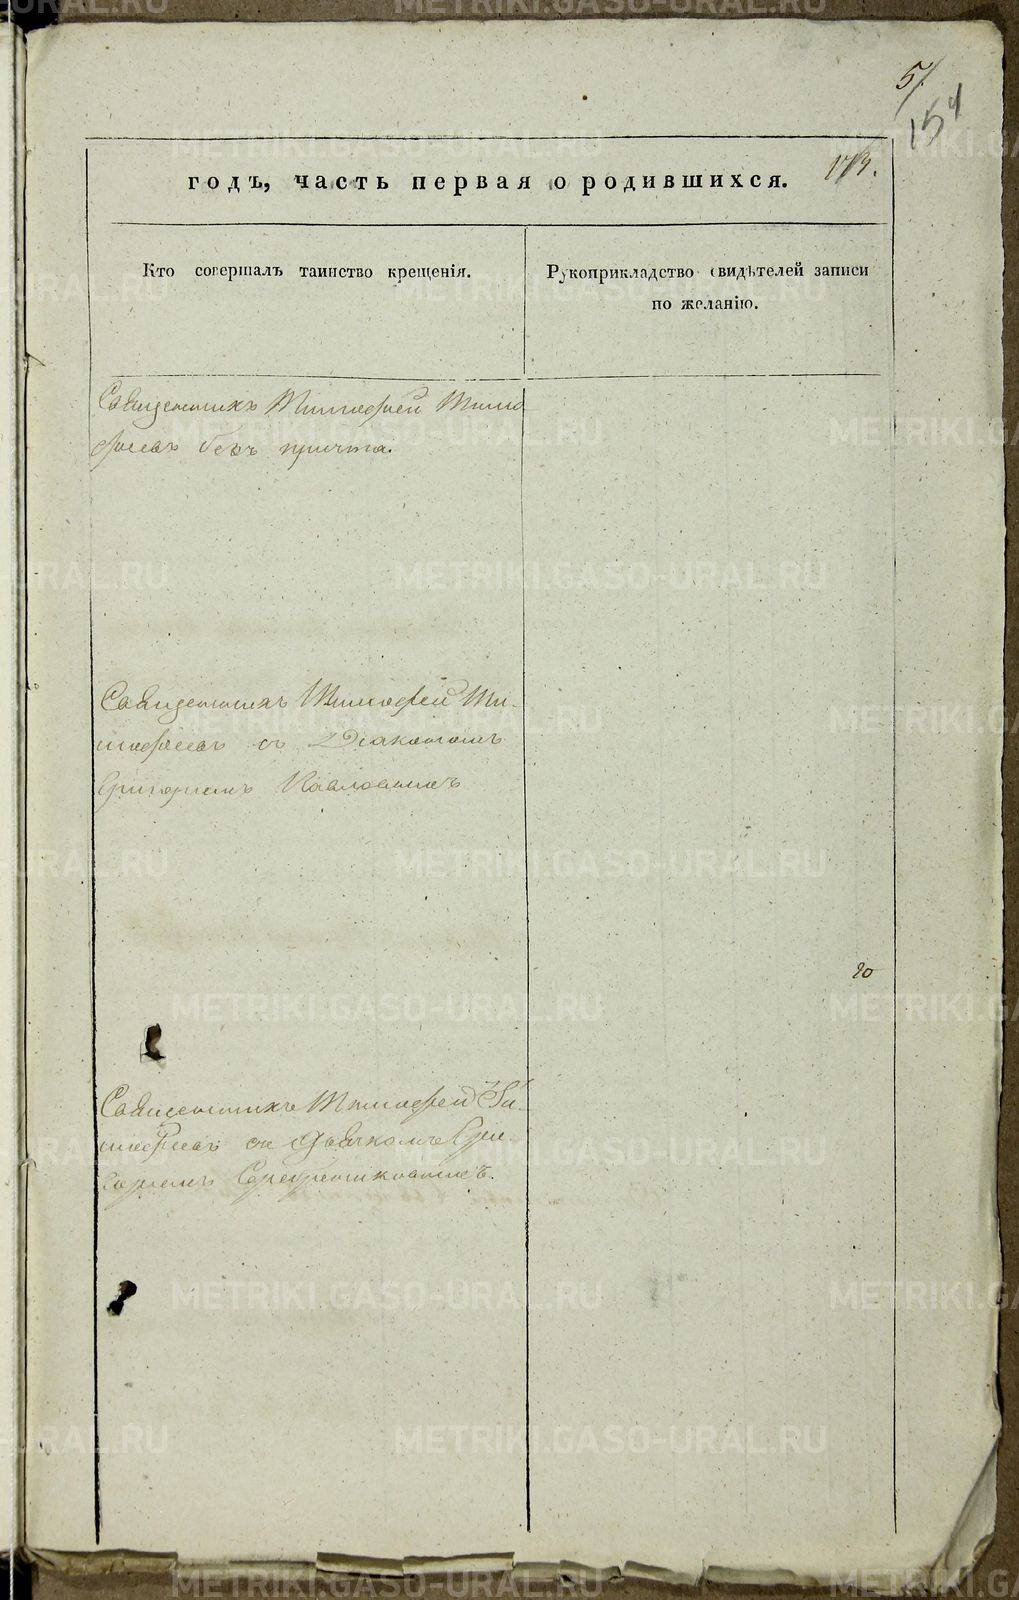 5/
154
годъ, часть первая о родившихся.
Кто совершалъ таинство крещенія.
Рукоприкладство свидѣтелей записи
по желанію.
Священникъ Тимофей Тимо
фѣевъ безъ причта.
Священникъ Тимофей Ти-
мофѣевъ съ Діакономъ
Григоріемъ Павловымъ
20
Священникъ Тимофей Ти-
мофѣевъ съ Дьячкомъ Гри-
горіемъ Серебрениковымъ.
METRIKI.GASO-URAL.RU